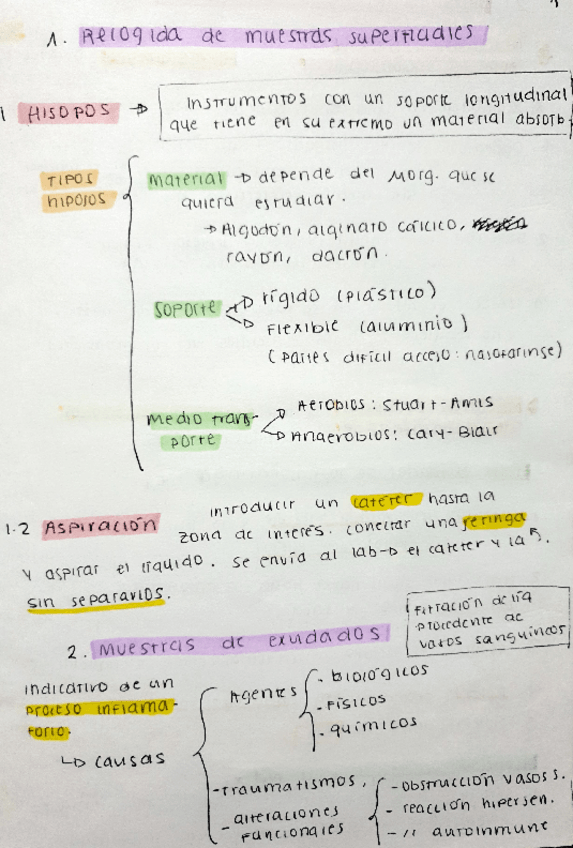 1. Recogida de muestras superficiales
HISOPOS → Instrumentos con un soporte longitudinal
que tiene en su extremo un material absorb.
TIPOS
hisopos
material → depende del Morg. que se
quiera estudiar.
→ Algodón, alginato cálcico,
rayón, dacrón.
Soporte → rígido (plástico)
→ Flexible (aluminio)
(partes difícil acceso: nasofaringe)
Medio trans-
porte
→ Aerobios: Stuart-Amis
→ Anaerobios: Cary-Blair
1.2 Aspiración
introducir un catéter hasta la
zona de interés. conectar una jeringa
y aspirar el líquido. Se envía al lab → el cateter y la ↖.
sin separarlos.
2. Muestras de exudados
Filtración de líq
procedente de
vasos sanguíneos
indicativo de un
proceso inflama-
torio.
↳ causas
Agentes
- biológicos
- Físicos
- químicos
- Traumatismos,
- alteraciones
funcionales
- obstrucción vasos s.
- reacción hipersen.
- " autoinmune